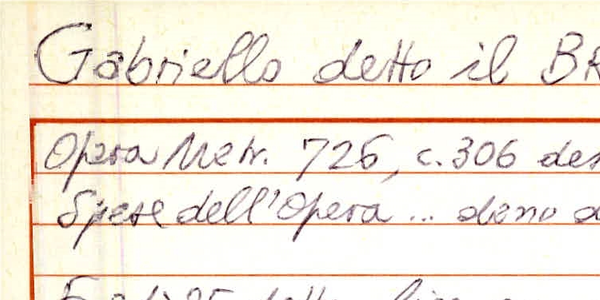 Gabriello detto il BR
Opera Metr. 726, c. 306 des
Spese dell'Opera ... deno d